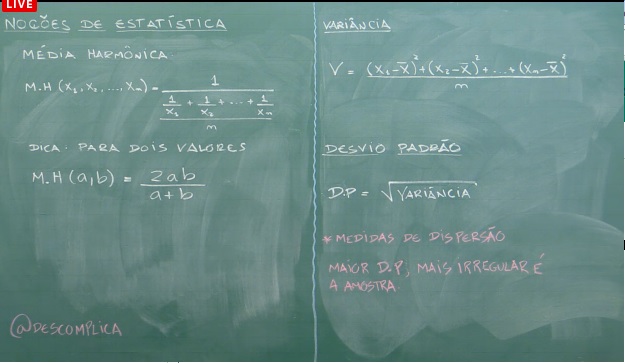 LIVE
NOÇÕES DE ESTATÍSTICA
MÉDIA HARMÔNICA:
M.H (x₁, x₂, ..., xₙ) = 1 / ((1/x₁ + 1/x₂ + ... + 1/xₙ) / n)
DICA: PARA DOIS VALORES
M.H (a,b) = 2ab / (a+b)
@DESCOMPLICA
VARIÂNCIA
V = ((x₁-x̄)² + (x₂-x̄)² + ... + (xₙ-x̄)²) / n
DESVIO PADRÃO
D.P = √VARIÂNCIA
* MEDIDAS DE DISPERSÃO
MAIOR D.P, MAIS IRREGULAR É
A AMOSTRA.